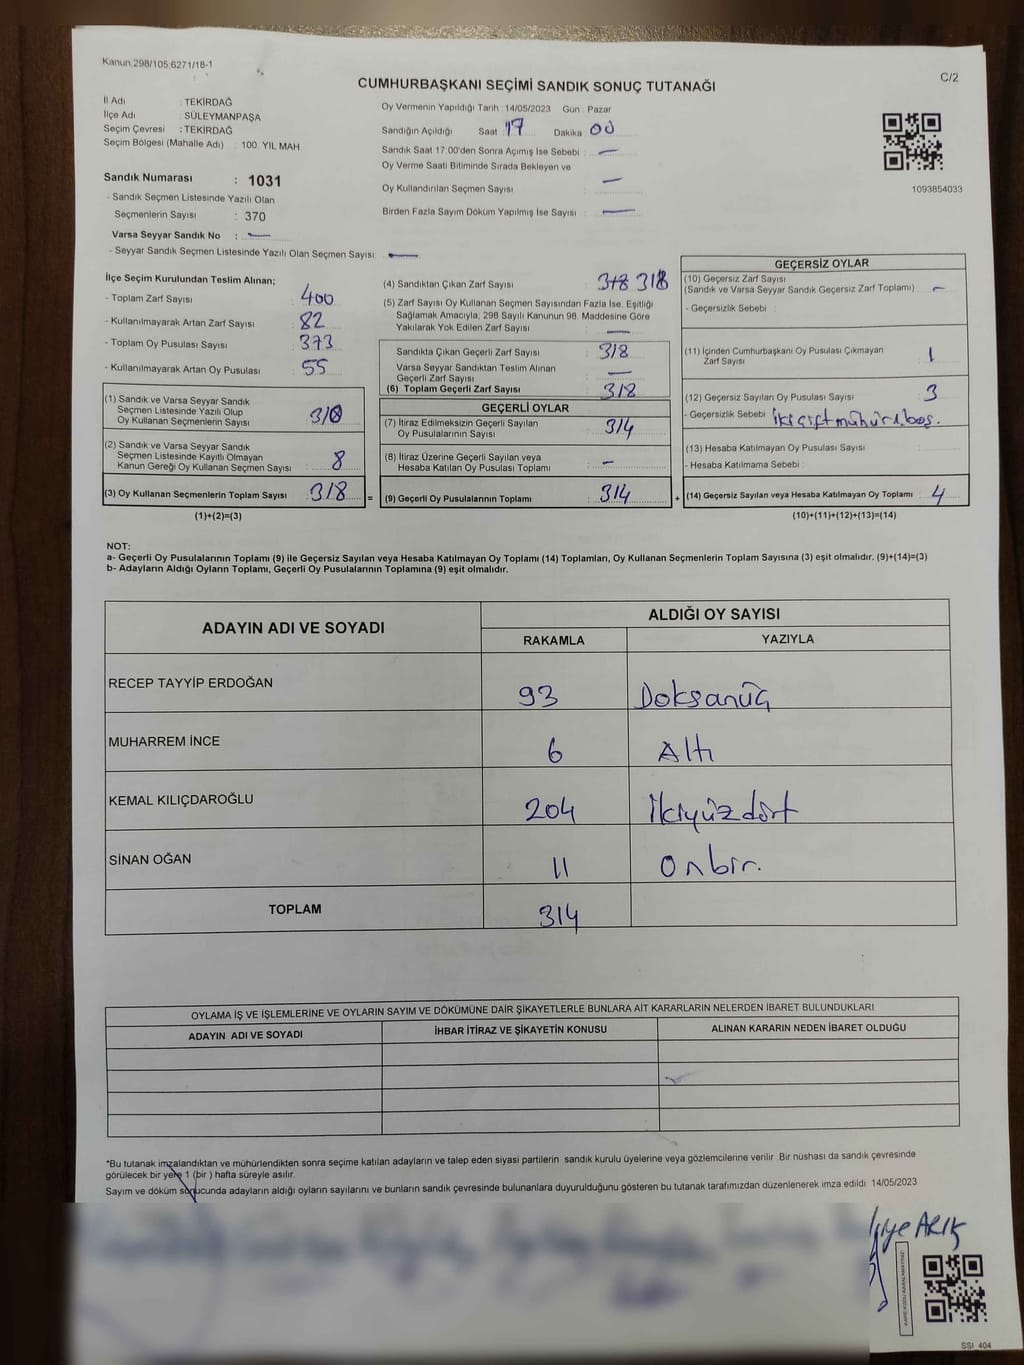 Kanun,298/105,6271/18-1
C/2
CUMHURBAŞKANI SEÇİMİ SANDIK SONUÇ TUTANAĞI
İl Adı : TEKİRDAĞ
İlçe Adı : SÜLEYMANPAŞA
Seçim Çevresi : TEKİRDAĞ
Seçim Bölgesi (Mahalle Adı) 100. YIL MAH.
Oy Vermenin Yapıldığı Tarih : 14/05/2023 Gün : Pazar
Sandığın Açıldığı Saat 17 Dakika 00
Sandık Saat 17:00'den Sonra Açımış İse Sebebi : —
Oy Verme Saati Bitiminde Sırada Bekleyen ve
Oy Kullandırılan Seçmen Sayısı —
Birden Fazla Sayım Döküm Yapılmış İse Sayısı —
1093854033
Sandık Numarası : 1031
- Sandık Seçmen Listesinde Yazılı Olan
Seçmenlerin Sayısı : 370
Varsa Seyyar Sandık No : —
- Seyyar Sandık Seçmen Listesinde Yazılı Olan Seçmen Sayısı: —
İlçe Seçim Kurulundan Teslim Alınan;
- Toplam Zarf Sayısı 400
- Kullanılmayarak Artan Zarf Sayısı : 82
- Toplam Oy Pusulası Sayısı : 373
- Kullanılmayarak Artan Oy Pusulası : 55
(1) Sandık ve Varsa Seyyar Sandık
Seçmen Listesinde Yazılı Olup
Oy Kullanan Seçmenlerin Sayısı : 310
(2) Sandık ve Varsa Seyyar Sandık
Seçmen Listesinde Kayıtlı Olmayan
Kanun Gereği Oy Kullanan Seçmen Sayısı 8
(3) Oy Kullanan Seçmenlerin Toplam Sayısı : 318 =
(1)+(2)=(3)
(4) Sandıktan Çıkan Zarf Sayısı 318
(5) Zarf Sayısı Oy Kullanan Seçmen Sayısından Fazla İse, Eşitliği
Sağlamak Amacıyla, 298 Sayılı Kanunun 98. Maddesine Göre
Yakılarak Yok Edilen Zarf Sayısı : —
Sandıkta Çıkan Geçerli Zarf Sayısı : 318
Varsa Seyyar Sandıktan Teslim Alınan
Geçerli Zarf Sayısı —
(6) Toplam Geçerli Zarf Sayısı 318
GEÇERLİ OYLAR
(7) İtiraz Edilmeksizin Geçerli Sayılan
Oy Pusulalarının Sayısı : 314
(8) İtiraz Üzerine Geçerli Sayılan veya
Hesaba Katılan Oy Pusulası Toplamı : —
(9) Geçerli Oy Pusulalarının Toplamı : 314 +
GEÇERSİZ OYLAR
(10) Geçersiz Zarf Sayısı
(Sandık ve Varsa Seyyar Sandık Geçersiz Zarf Toplamı) : —
- Geçersizlik Sebebi :
(11) İçinden Cumhurbaşkanı Oy Pusulası Çıkmayan
Zarf Sayısı : 1
(12) Geçersiz Sayılan Oy Pusulası Sayısı : 3
- Geçersizlik Sebebi İki çift mühür.1.boş.
(13) Hesaba Katılmayan Oy Pusulası Sayısı :
- Hesaba Katılmama Sebebi :
(14) Geçersiz Sayılan veya Hesaba Katılmayan Oy Toplamı : 4
(10)+(11)+(12)+(13)=(14)
NOT:
a- Geçerli Oy Pusulalarının Toplamı (9) ile Geçersiz Sayılan veya Hesaba Katılmayan Oy Toplamı (14) Toplamları, Oy Kullanan Seçmenlerin Toplam Sayısına (3) eşit olmalıdır. (9)+(14)=(3)
b- Adayların Aldığı Oyların Toplamı, Geçerli Oy Pusulalarının Toplamına (9) eşit olmalıdır.
ADAYIN ADI VE SOYADI
ALDIĞI OY SAYISI
RAKAMLA YAZIYLA
RECEP TAYYİP ERDOĞAN 93 Doksanüç
MUHARREM İNCE 6 Altı
KEMAL KILIÇDAROĞLU 204 İkiyüzdört
SİNAN OĞAN 11 Onbir.
TOPLAM 314
OYLAMA İŞ VE İŞLEMLERİNE VE OYLARIN SAYIM VE DÖKÜMÜNE DAİR ŞİKAYETLERLE BUNLARA AİT KARARLARIN NELERDEN İBARET BULUNDUKLARI
ADAYIN ADI VE SOYADI İHBAR İTİRAZ VE ŞİKAYETİN KONUSU ALINAN KARARIN NEDEN İBARET OLDUĞU
*Bu tutanak imzalandıktan ve mühürlendikten sonra seçime katılan adayların ve talep eden siyasi partilerin sandık kurulu üyelerine veya gözlemcilerine verilir. Bir nüshası da sandık çevresinde
görülecek bir yere 1 (bir) hafta süreyle asılır.
Sayım ve döküm sonucunda adayların aldığı oyların sayılarını ve bunların sandık çevresinde bulunanlara duyurulduğunu gösteren bu tutanak tarafımızdan düzenlenerek imza edildi 14/05/2023
ARIK
SSI_404